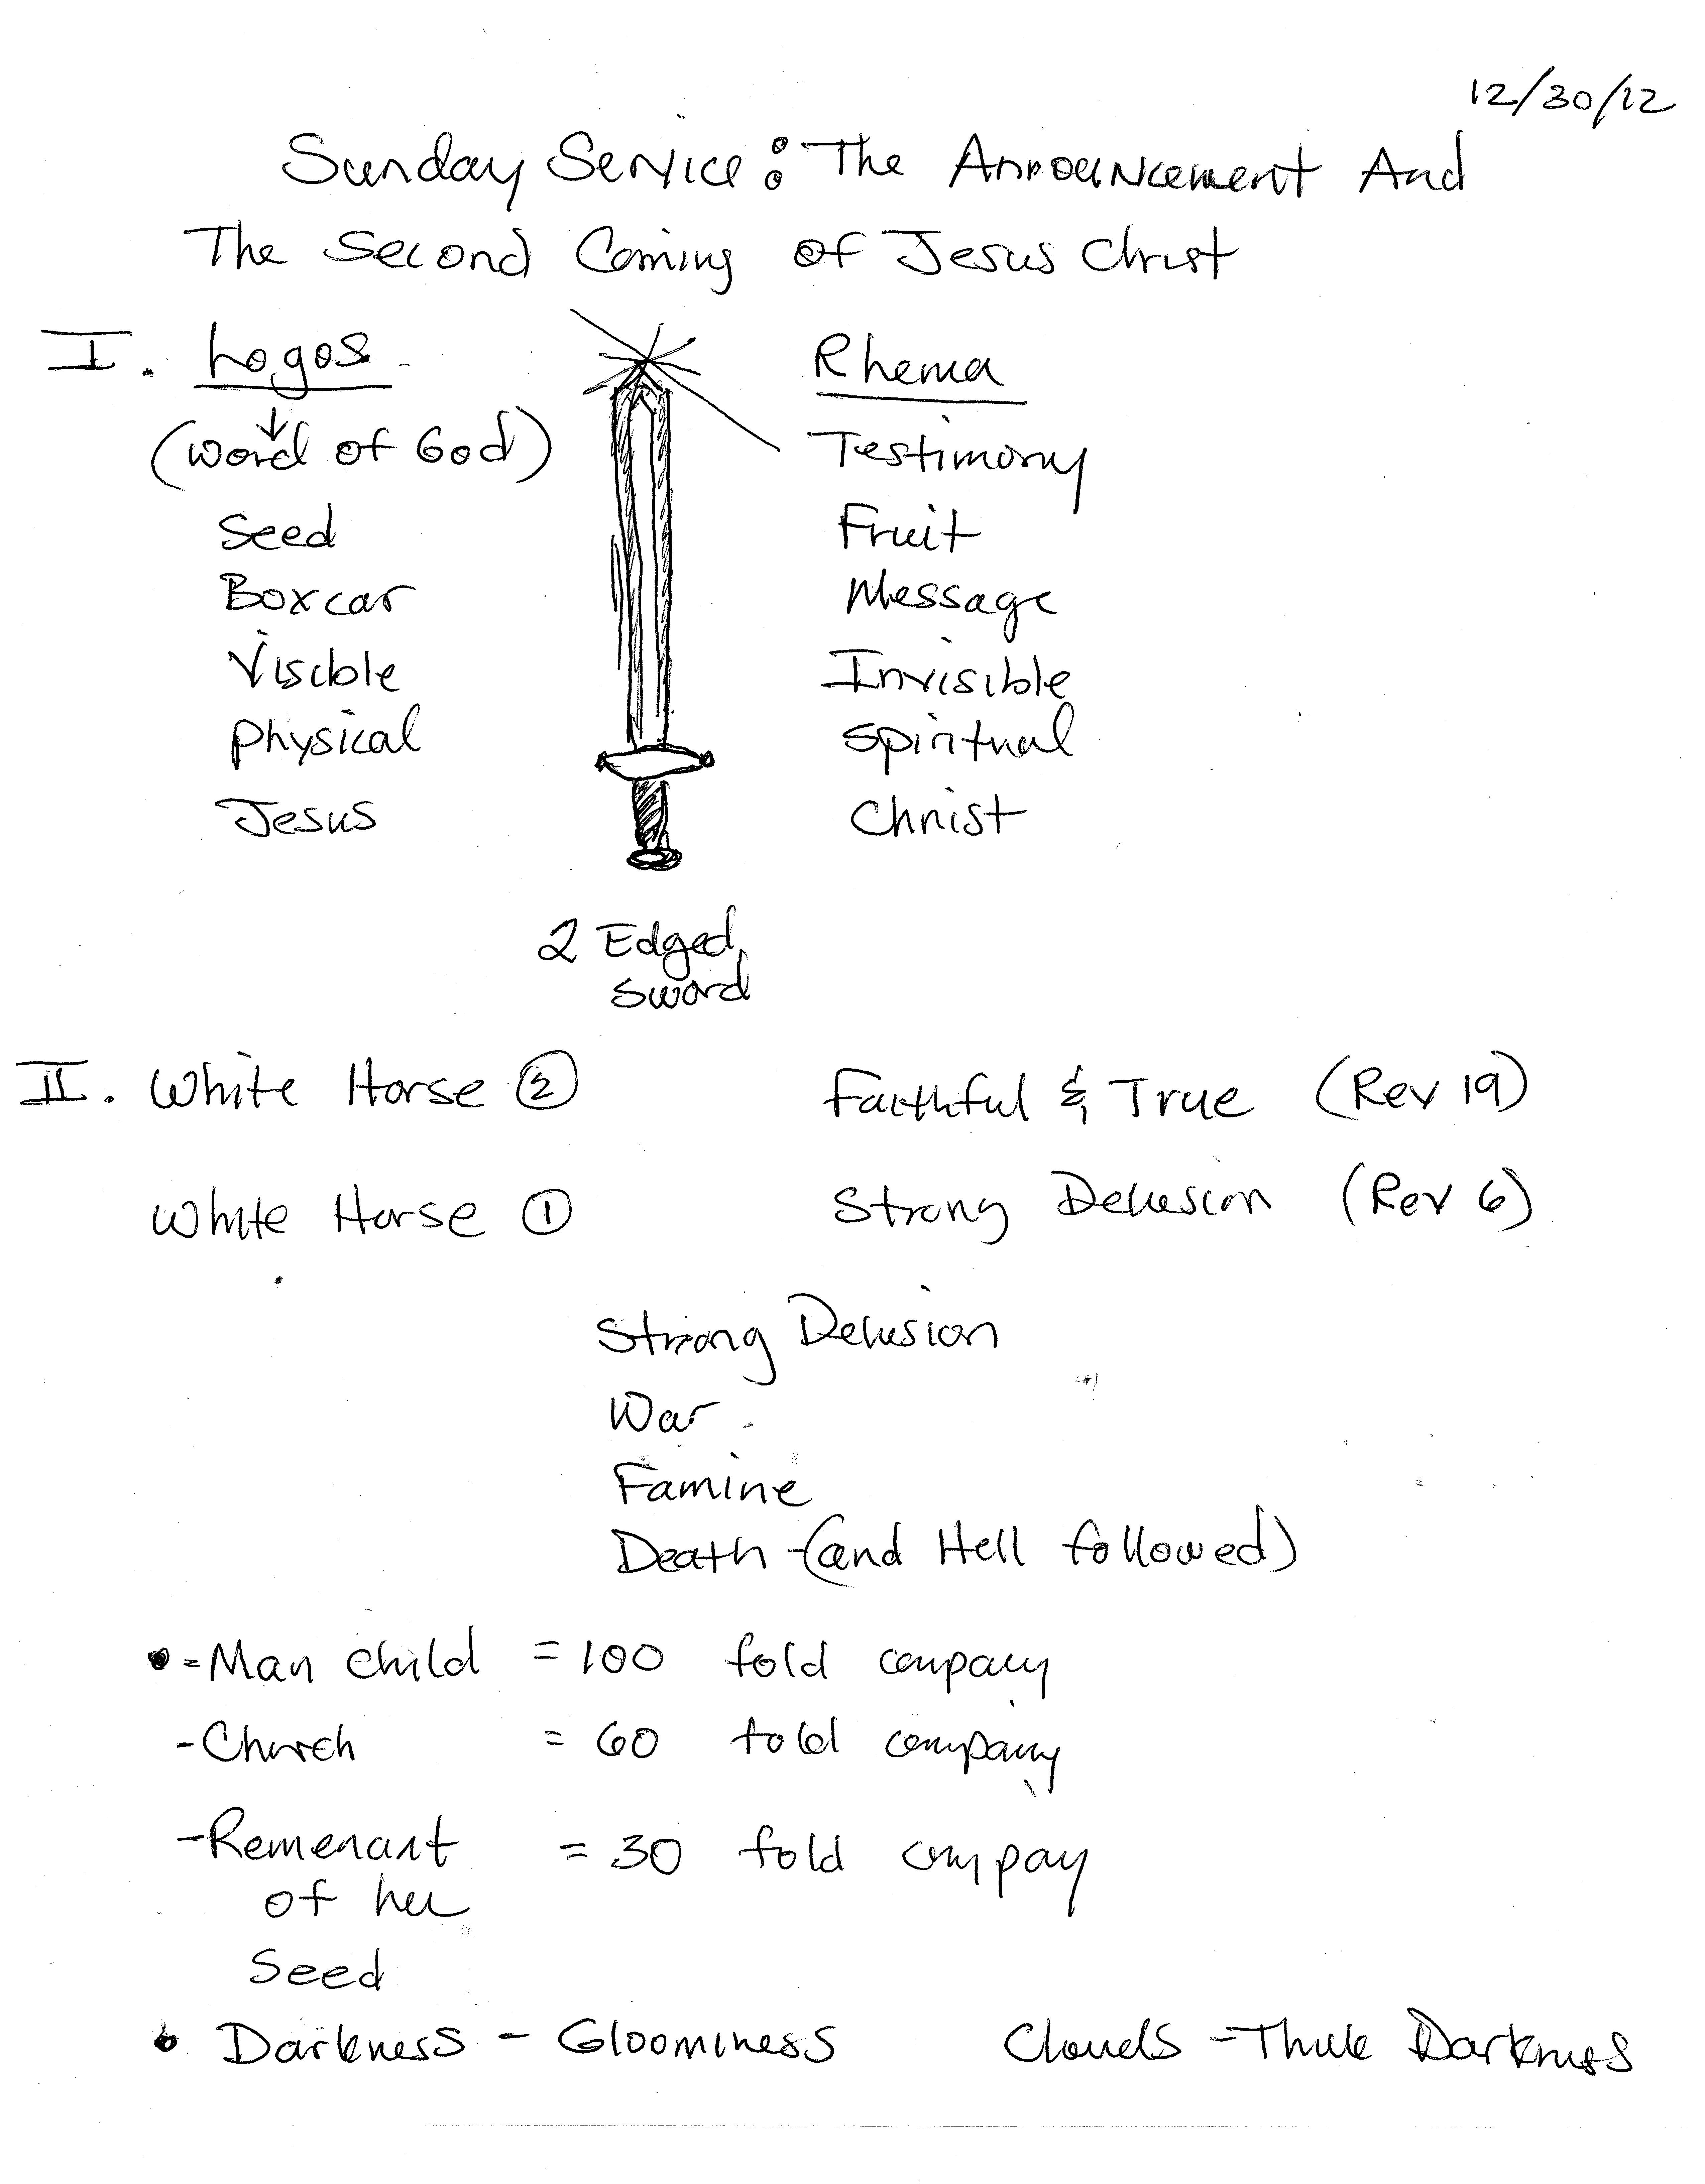 12/30/12
Sunday Service: The Announcement And
The Second Coming of Jesus Christ
I. Logos - Rhema
(Word of God) Testimony
Seed Fruit
Boxcar Message
Visible Invisible
Physical Spiritual
Jesus Christ
2 Edged
Sword
II. White Horse ② Faithful & True (Rev 19)
White Horse ① Strong Delusion (Rev 6)
Strong Delusion
War
Famine
Death - (and Hell followed)
• - Man child = 100 fold company
- Church = 60 fold company
- Remenant = 30 fold compay
of her
Seed
• Darkness - Gloominess Clouds - Thick Darkness